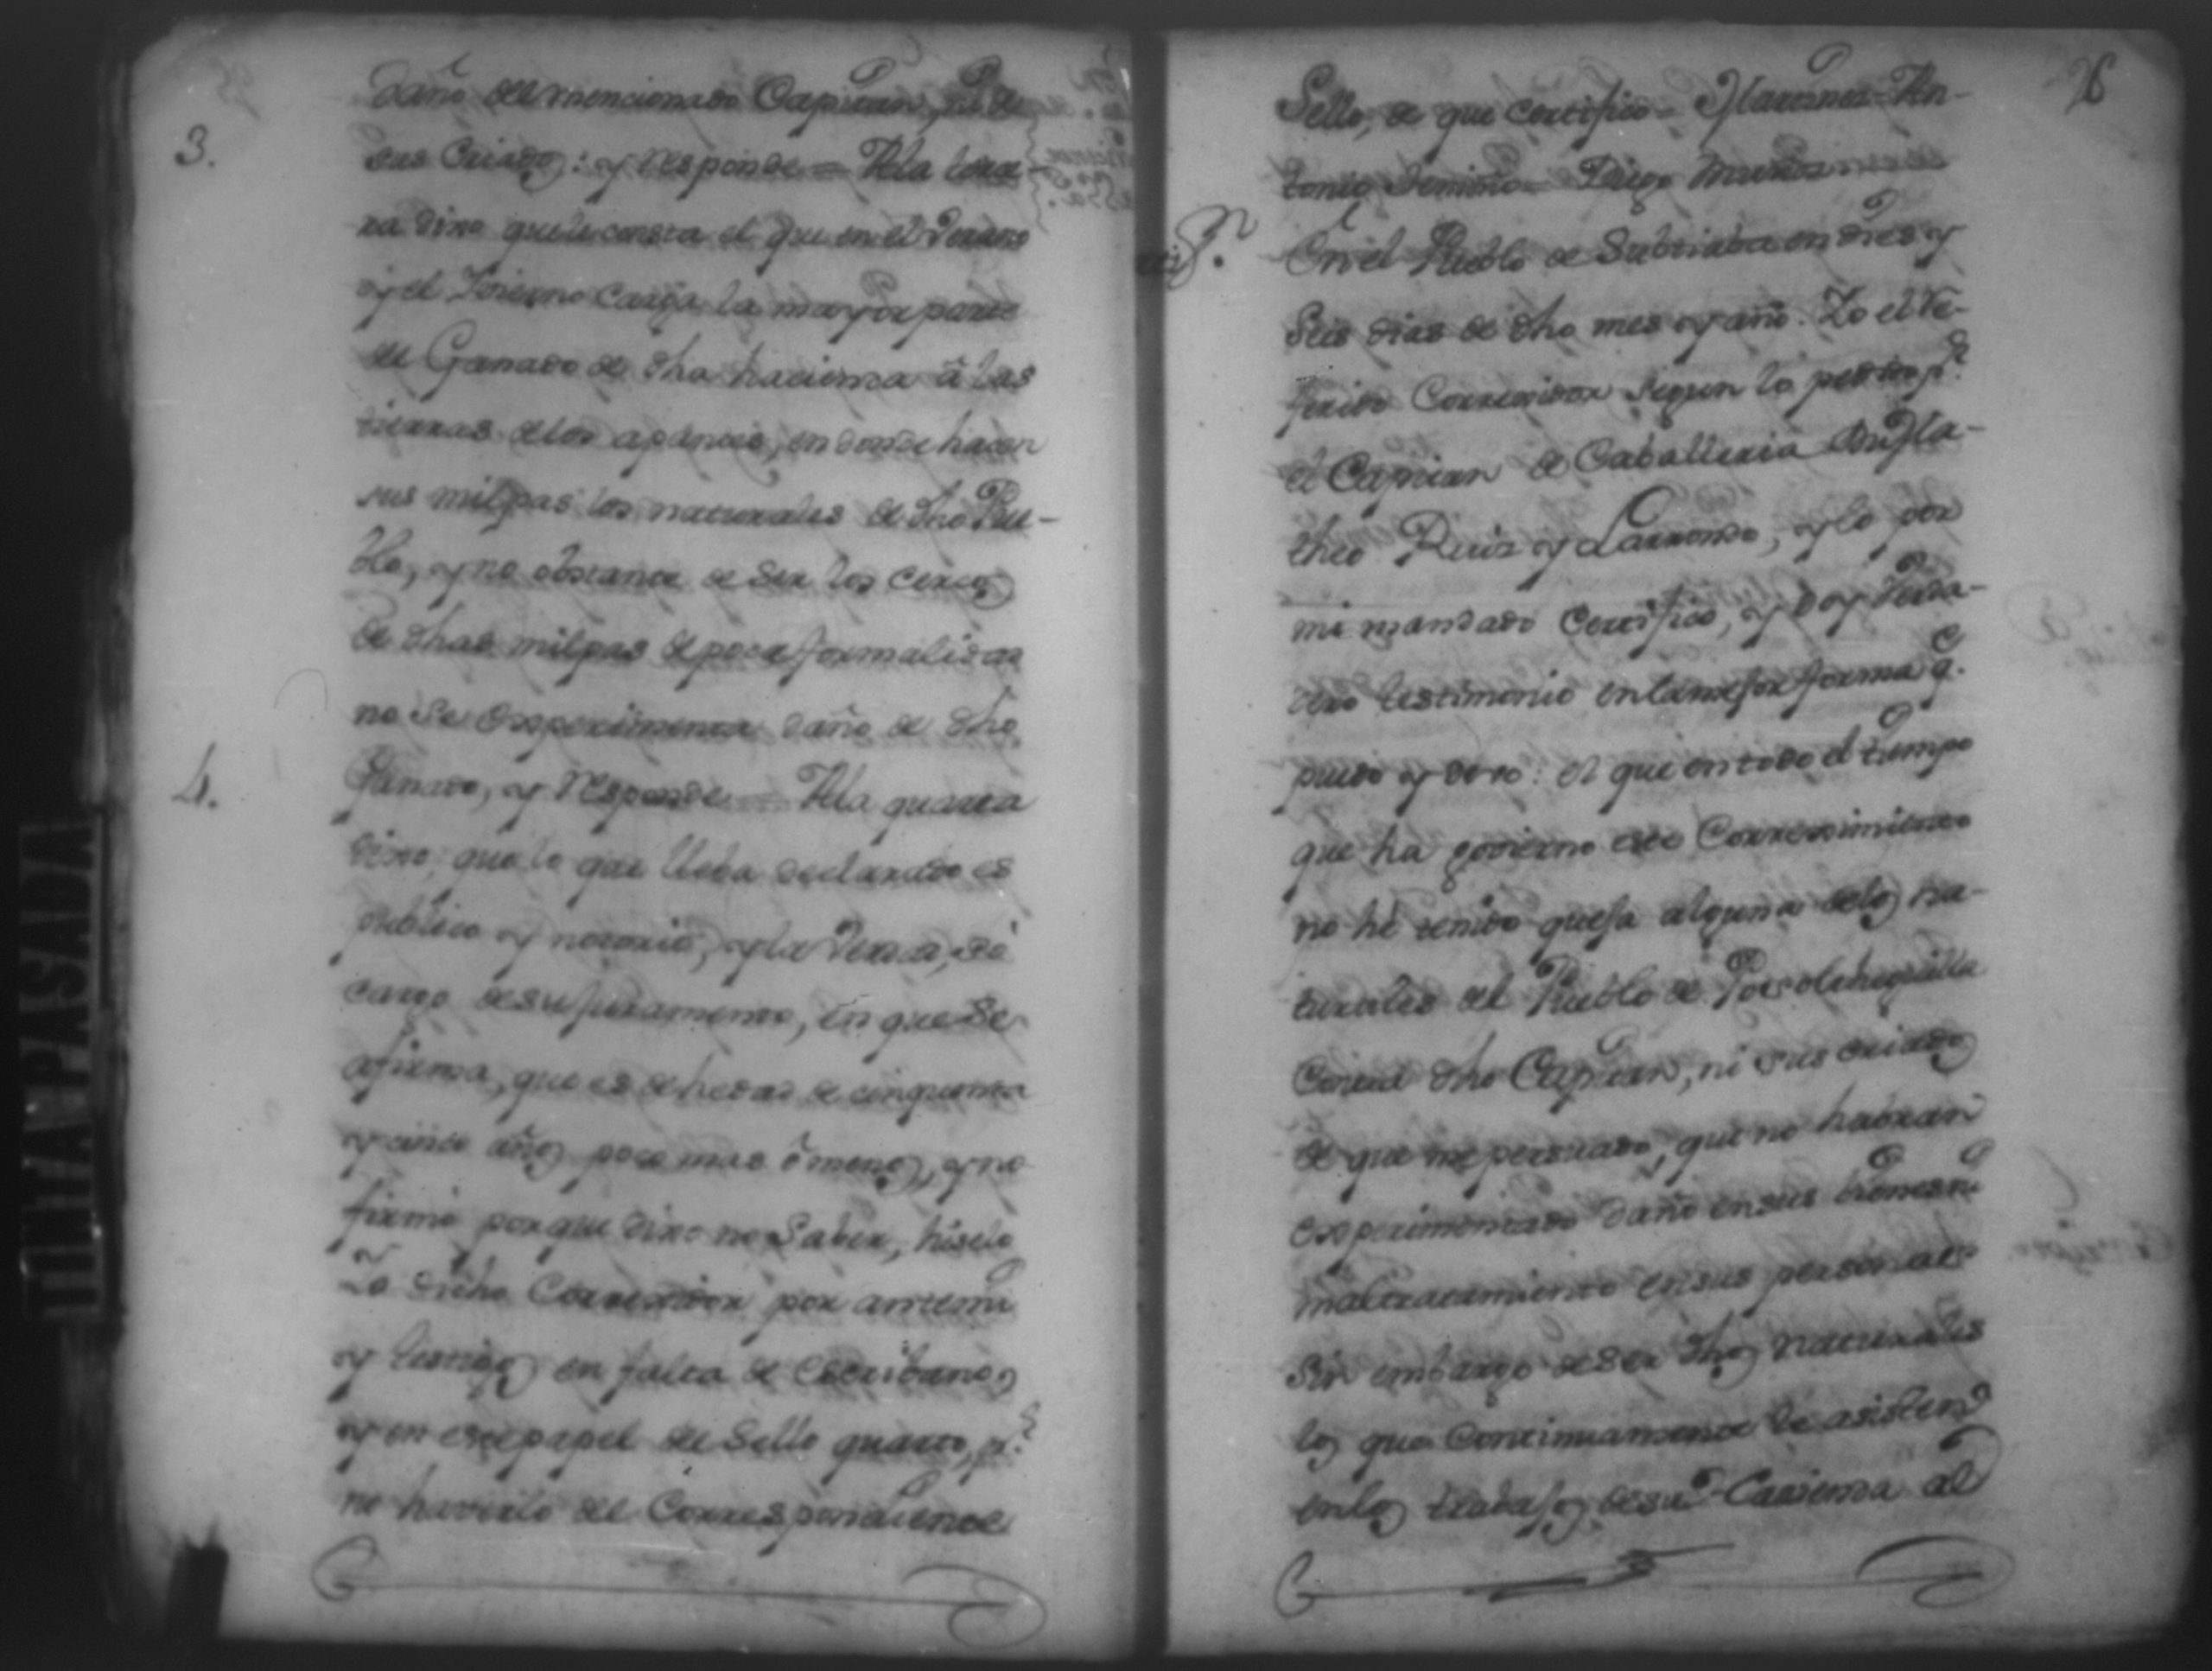 daño del mencionado Capitan, ni de
3.
sus Criados: y responde = A la terce-
ra dixo que le consta el que en el Verano
y el Ivierno carga la mayor parte
de Ganado de dha hacienda â las
tierras de los apantes, en donde hacen
sus milpas los naturales de dho Pue-
blo, y no obstante de ser los cercos
de dhas milpas de poca formalidad
no se experimenta daño de dho
4.
Ganado, y responde = A la quarta
dixo, que lo que lleba declarado es
publico y notorio, y la verdad,
cargo de su juramento, en que se
afirma, que es de hedad de cinquenta
y cinco años poco mas ô menos, y no
firmó porque dixo no saber, hiselo
Yo dicho Corregidor por ante mi
y testigos en falta de Escribano,
y en este papel de Sello quarto, pr.
no haverlo del Correspondiente
76
Sello, de que certifico = An-
tonio = Diego Muñoz
En el Pueblo de Subtiaba en dies y
Seis dias de dho mes y año. Yo el re-
ferido Corregidor segun lo pedido pr.
el Capitan de Caballeria Dn Ma-
theo Ruiz y Larrondo, y lo por
mi mandado Certifico, y doy verda-
dero testimonio en la mejor forma q.
puedo y devo: el que en todo el tiempo
que ha govierno este Corregimiento
no hé tenido quexa alguna de los na-
turales del Pueblo de Posolteguilla
Contra dho Capitan, ni sus criados
de que me persuado, que no habran
experimentado daño en sus bienes ni
maltratamiento en sus personas
Sin embargo de ser dhos naturales
los que Continuamente le asisten
en los trabajos de su Hacienda al